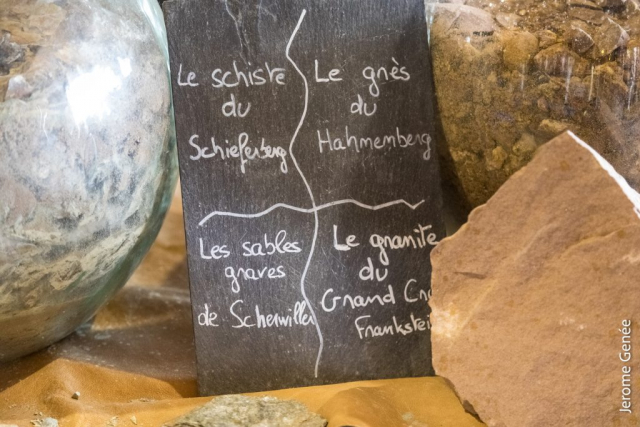 Le schiste
du
Schieferberg
Le gnès
du
Hahmenberg
Les sables
graves
de Scherwiller
Le granite
du
Grand Cr
Frankstei
Jerome Genée